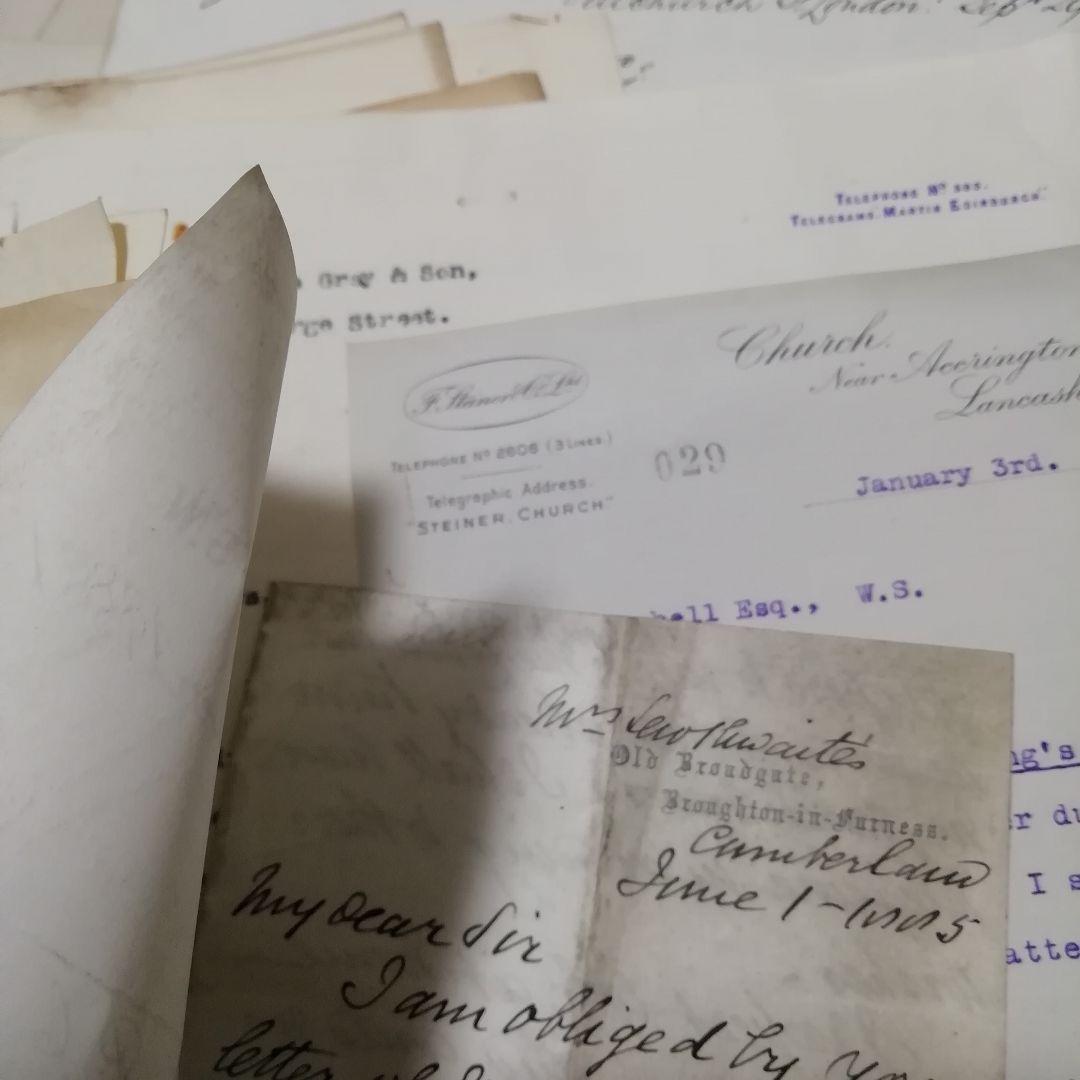 London.
TELEPHONE Nº
TELEGRAMS "MARTIN EDINBURGH"
Gray & Son,
Street.
F. Steiner & Co Ltd
TELEPHONE Nº 2606 (3 LINES.)
Telegraphic Address.
"STEINER, CHURCH"
029
Church.
Near Accrington
Lancash
January 3rd.
ell Esq., W.S.
ng's
r du
I s
atte
Mrs Lewthwaite's
Old Broadgate,
Broughton-in-Furness.
Cumberland
June 1-
My dear Sir
I am obliged by yo
letter of